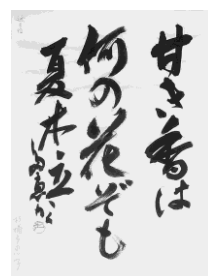 甘き香は
何の花ぞも
夏木立